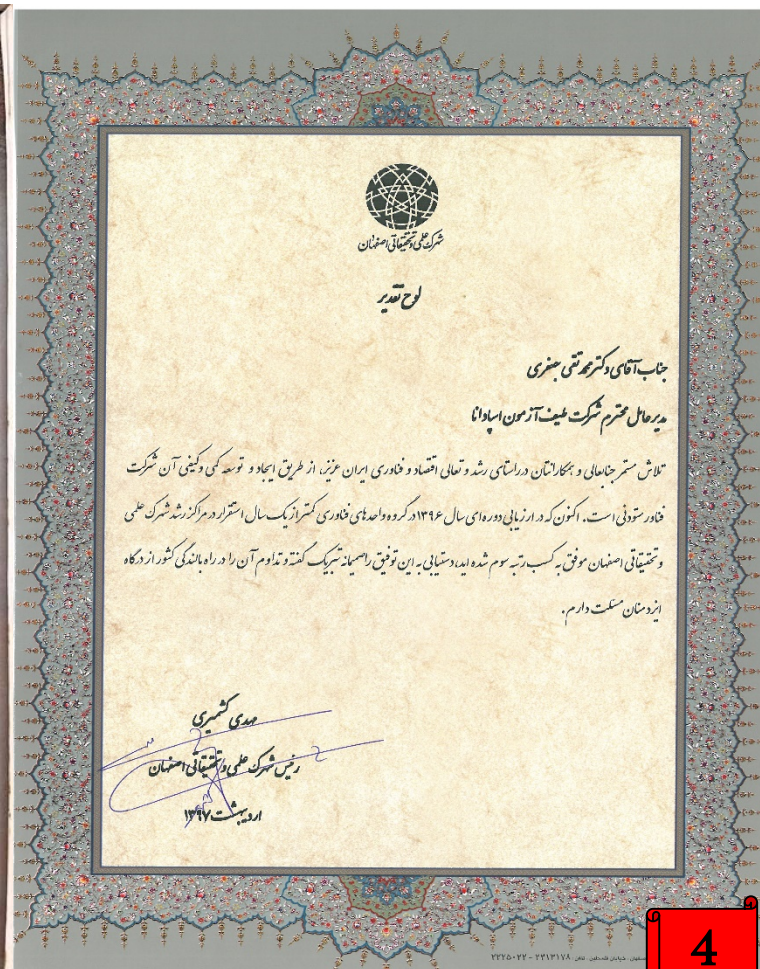 شهرک علمی و تحقیقاتی اصفهان
لوح تقدیر
جناب آقای دکتر محمد تقی جعفری
مدیر عامل محترم شرکت طیف آزمون اسپادانا
تلاش مستمر جنابعالی و همکارانتان در راستای رشد و تعالی اقتصاد و فناوری ایران عزیز، از طریق ایجاد و توسعه کمی و کیفی آن شرکت
فناور ستودنی است. اکنون که در ارزیابی دوره ای سال ۱۳۹۶ در گروه واحدهای فناوری کمتر از یک سال استقرار در مراکز رشد شهرک علمی
و تحقیقاتی اصفهان موفق به کسب رتبه سوم شده اید، دستیابی به این توفیق را صمیمانه تبریک گفته و تداوم آن را در راه بالندگی کشور از درگاه
ایزد منان مسئلت دارم.
مهدی کشمیری
رئیس شهرک علمی و تحقیقاتی اصفهان
اردیبهشت ۱۳۹۷
۲۲۲۵۰۲۲ - ۲۳۱۳۱۷۸
4